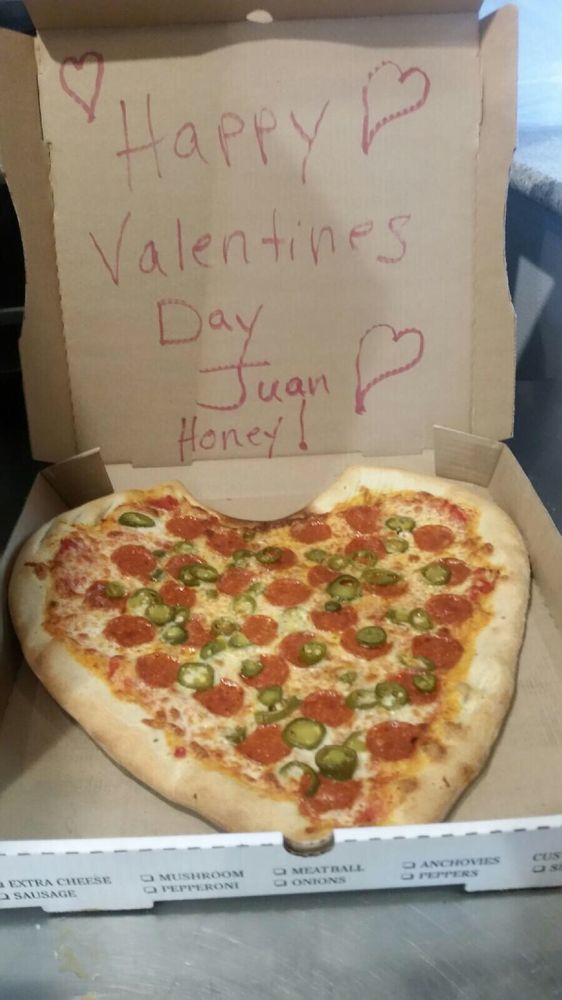 Happy
Valentines
Day
Juan
Honey!
EXTRA CHEESE
SAUSAGE
MUSHROOM
PEPPERONI
MEATBALL
ONIONS
ANCHOVIES
PEPPERS